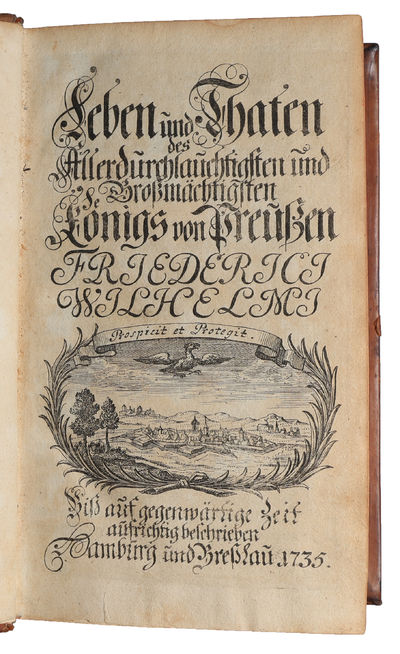 Leben und Thaten
des
Allerdurchlauchtigsten und
Großmächtigsten
Königs von Preußen
FRIEDERICI
WILHELMI
Prospicit et Protegit.
Biß auf gegenwärtige Zeit
aufrichtig beschrieben
Hamburg und Breßlau 1735.